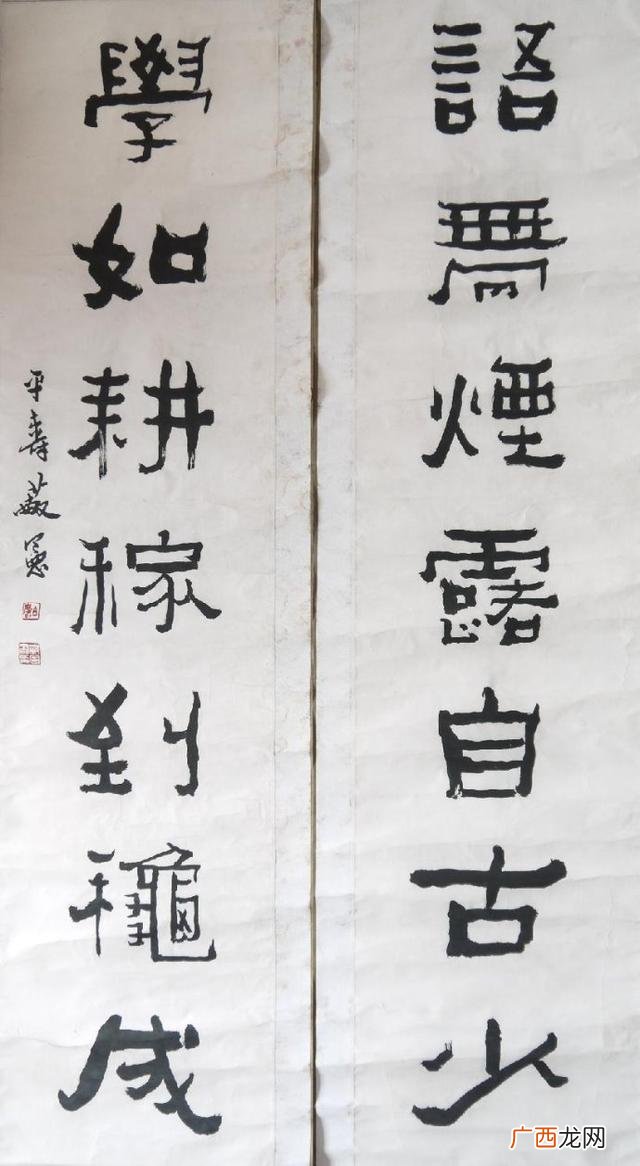 語無煙露自古少
學如耕稼到龝成
平壽
广西龙网